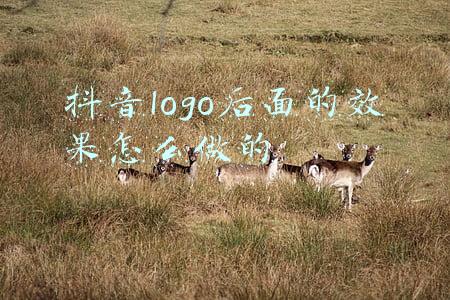 抖音logo后面的效
果怎么做的